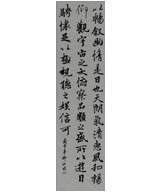 以暢叙幽情是日也天朗氣清惠風和暢
仰觀宇宙之大俯察品類之盛所以遊目
騁懷足以極視聽之娛信可